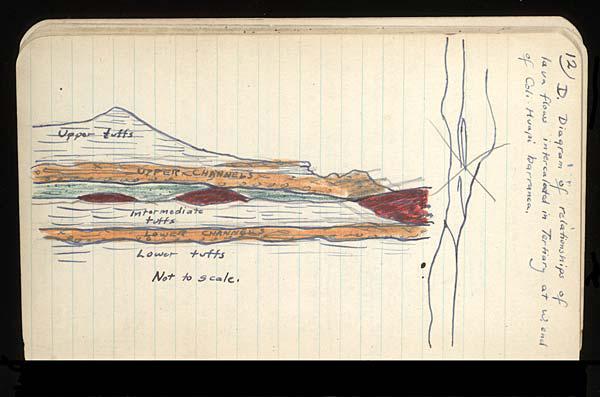 12) D. Diagram of relationships of
lava flows intercalated in Tertiary at W. end
of Coli-Huapi barranca.
Upper tuffs
UPPER CHANNELS
Intermediate
tuffs
LOWER CHANNELS
Lower tuffs
Not to scale.